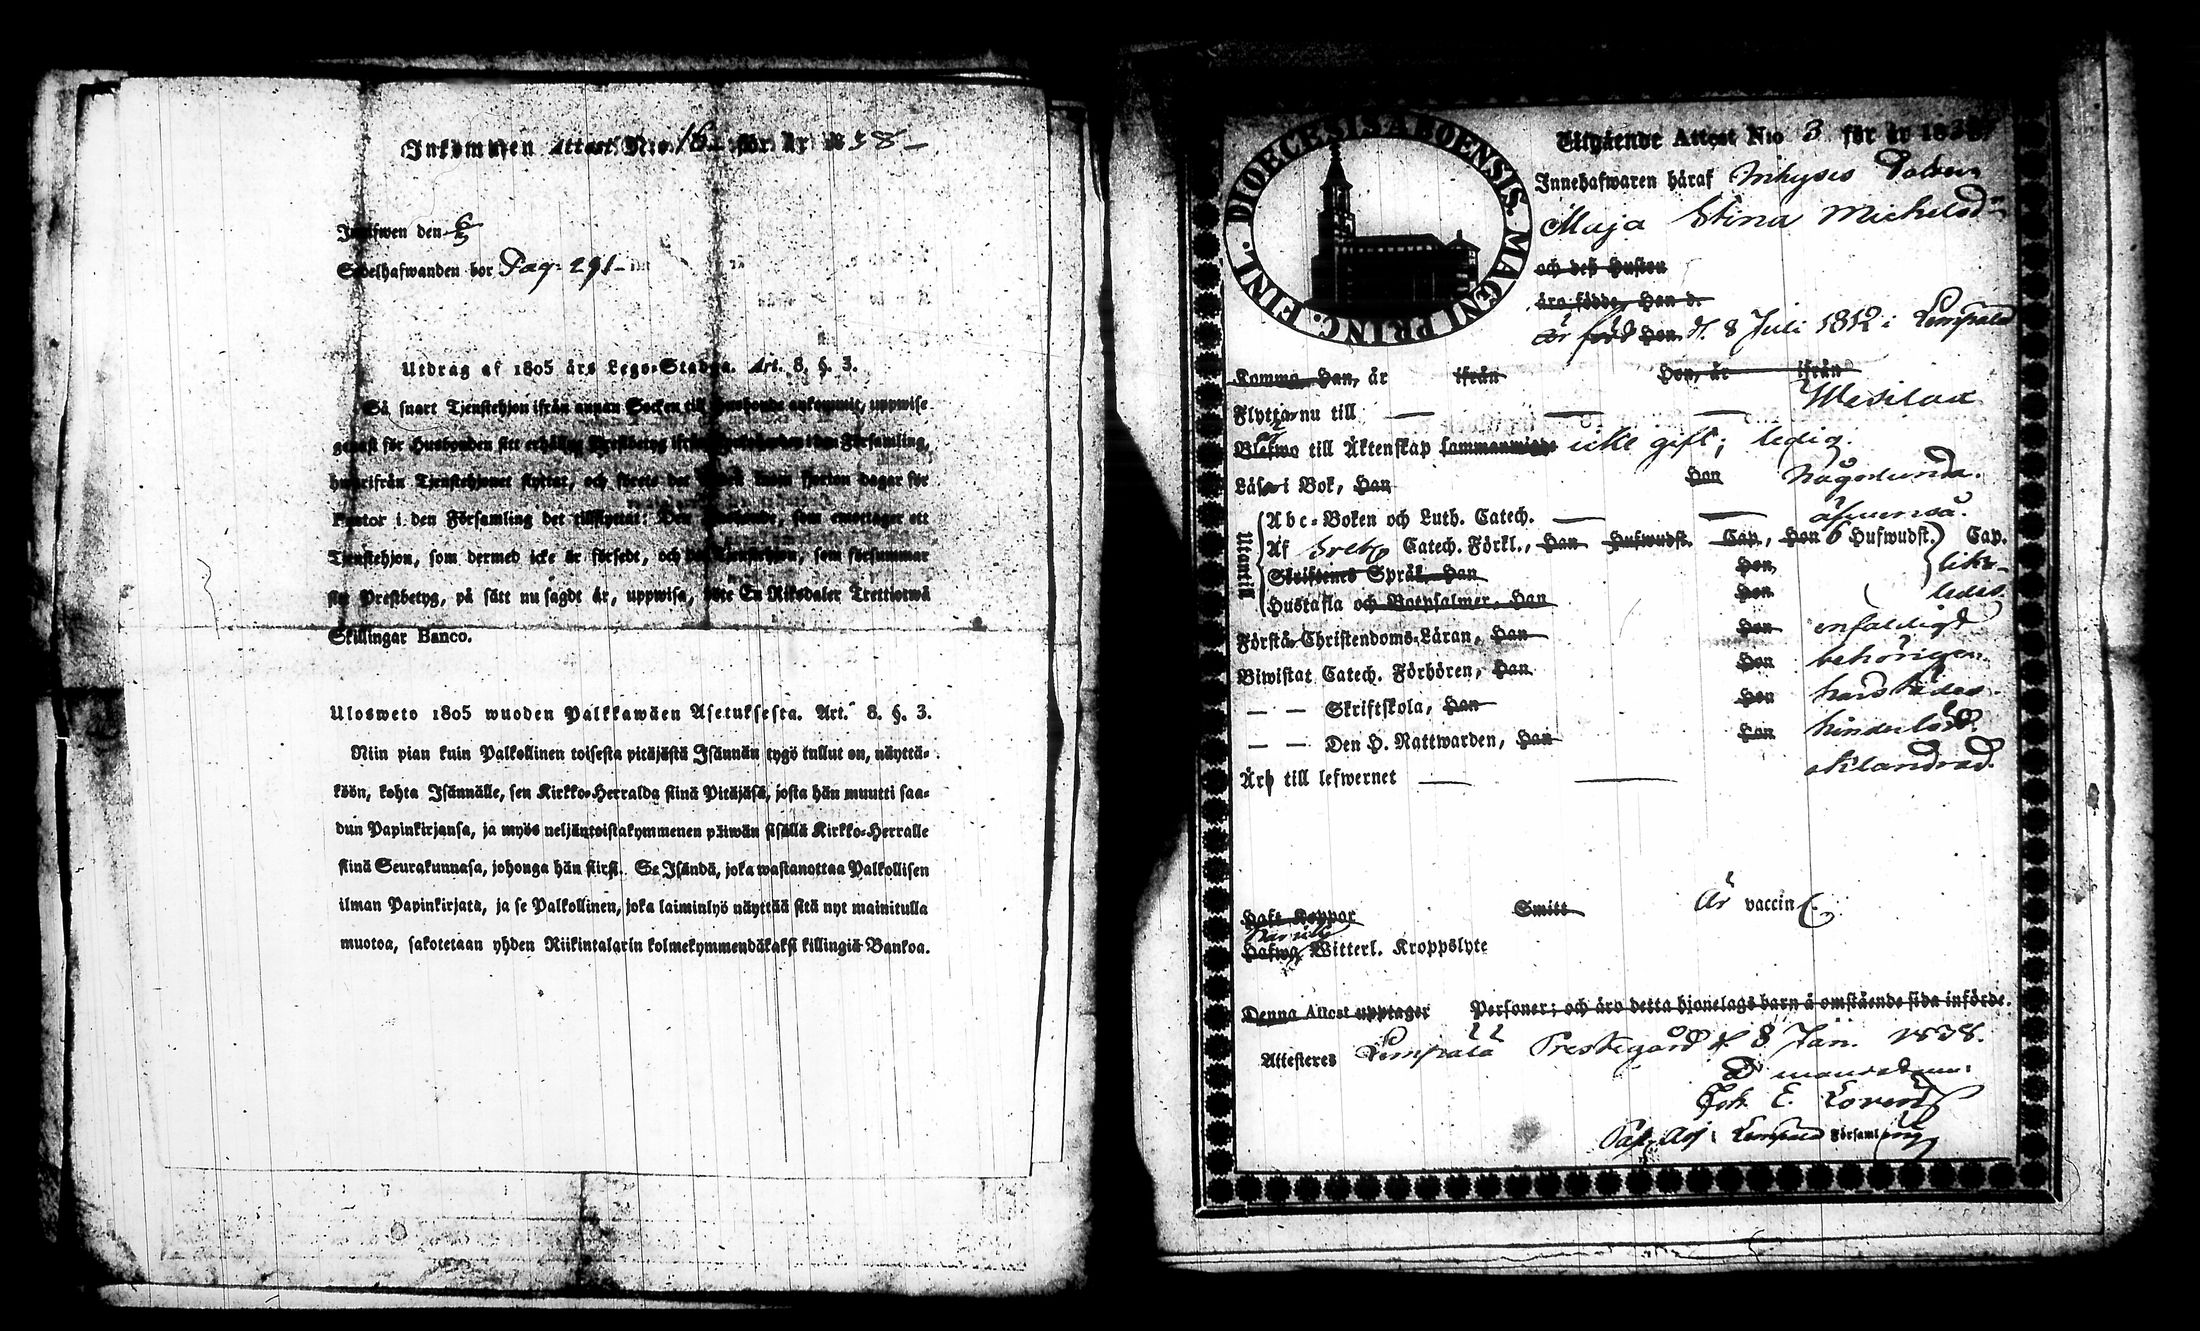 Inkommen Attest N:o 16 för år 1838
Inskrifwen den 6/5
Sedelhafwanden bor Pag. 291
Utdrag af 1805 års Lego-Stadga. Art. 8. §. 3.
Så snart Tjenstehjon ifrån annan Socken till Husbonde ankommit, uppwise
genast för Husbonden sitt erhållna Prestbetyg ifrån Kyrkoherden i den Församling,
hwarifrån Tjenstehjonet flyttat, och förete det inom fjorton dagar för
Pastor i den Församling det tillflyttat. Den Husbonde, som emottager ett
Tjenstehjon, som dermed icke är försedt, och det Tjenstehjon, som försummar
sitt Prestbetyg, på sätt nu sagdt är, uppwisa, böte En Riksdaler Trettiotwå
Skillingar Banco.
Ulosweto 1805 wuoden Palkkawäen Asetuksesta. Art. 8. §. 3.
Niin pian kuin Palkollinen toisesta pitäjästä Isännän tygö tullut on, näyttä-
köön, kohta Isännälle, sen Kirkko-Herralda siinä Pitäjäsä, josta hän muutti saa-
dun Papinkirjansa, ja myös neljäntoistakymmenen päiwän sisällä Kirkko-Herralle
siinä Seurakunnasa, johonga hän siirsi. Se Isändä, joka wastanottaa Palkollisen
ilman Papinkirjata, ja se Palkollinen, joka laiminlyö näyttää sitä nyt mainitulla
muotoa, sakotetaan yhden Riikintalarin kolmekymmendäkaksi killingiä Bankoa.
DIOECESIS ABOENSIS. MAGNI PRINC. FINL.
Utgående Attest N:o 3 för år 1838
Innehafwaren häraf Inhyses
Maja Stina Michelsd:r
och deß Hustru
äro födde, Han d.
är född Hon d. 8 Juli 1812 i Lempälä
Komma, Han, är ifrån Hon, är ifrån
Flytta nu till — — — Wesilax
Blefwo till Äktenskap sammanwigde icke gift; ledig.
Läsa i Bok, Han Hon någorlunda.
Utantill
Abc-Boken och Luth. Catech. — — äfwenså.
Af Sveb. Catech. Förkl., Han Hufwudst. Cap., Hon 6 Hufwudst. Cap.
Skriftenes Språk, Han Hon, lika-
Hustafla och Botpsalmer, Han Hon ledes.
Förstå Christendoms-Läran, Han Hon enfaldigt
Biwistat Catech. Förhören, Han Hon behörigen.
— — Skriftskola, Han Hon härstädes.
— — Den H. Nattwarden, Han Hon hinderlös.
Äro till lefwernet — — oklandrad.
Haft Koppor Smitt Är vaccin.
Hafwa Witterl. Kroppslyte
Denna Attest upptager Personer; och äro detta hjonelags barn å omstående sida införde.
Attesteres Lempälä Prestegård d. 8 Jan. 1838.
Ad mandatum:
Joh. E.
i Lempälä Församling